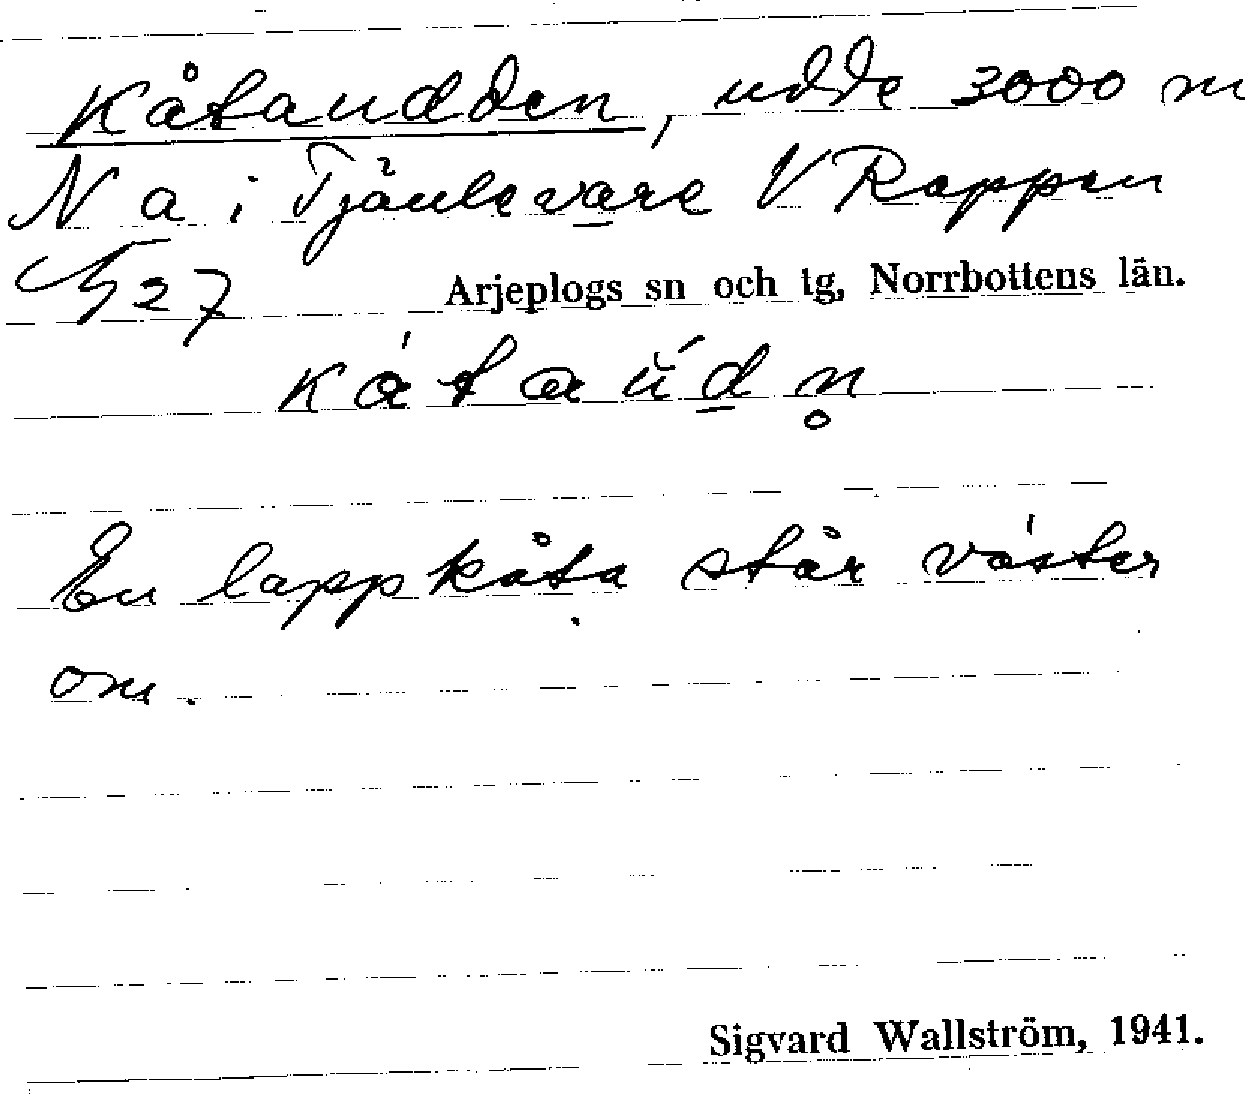 Kåtaudden, udde 3000 m
N a i Tjäulevare V Rappen
27 Arjeplogs sn och tg, Norrbottens län.
En lappkåta står väster
om.
Sigvard Wallström, 1941.